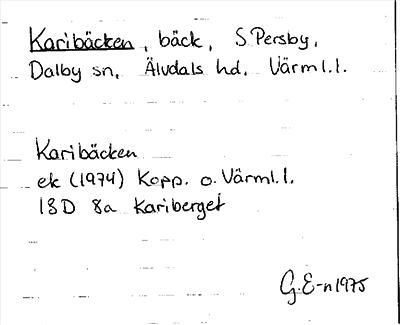 Karibäcken, bäck, S Persby,
Dalby sn, Älvdals hd, Värml.l.
Karibäcken
ek (1974) Kopp. o. Värml.l.
18D 8a Kariberget
G.E-n 1975